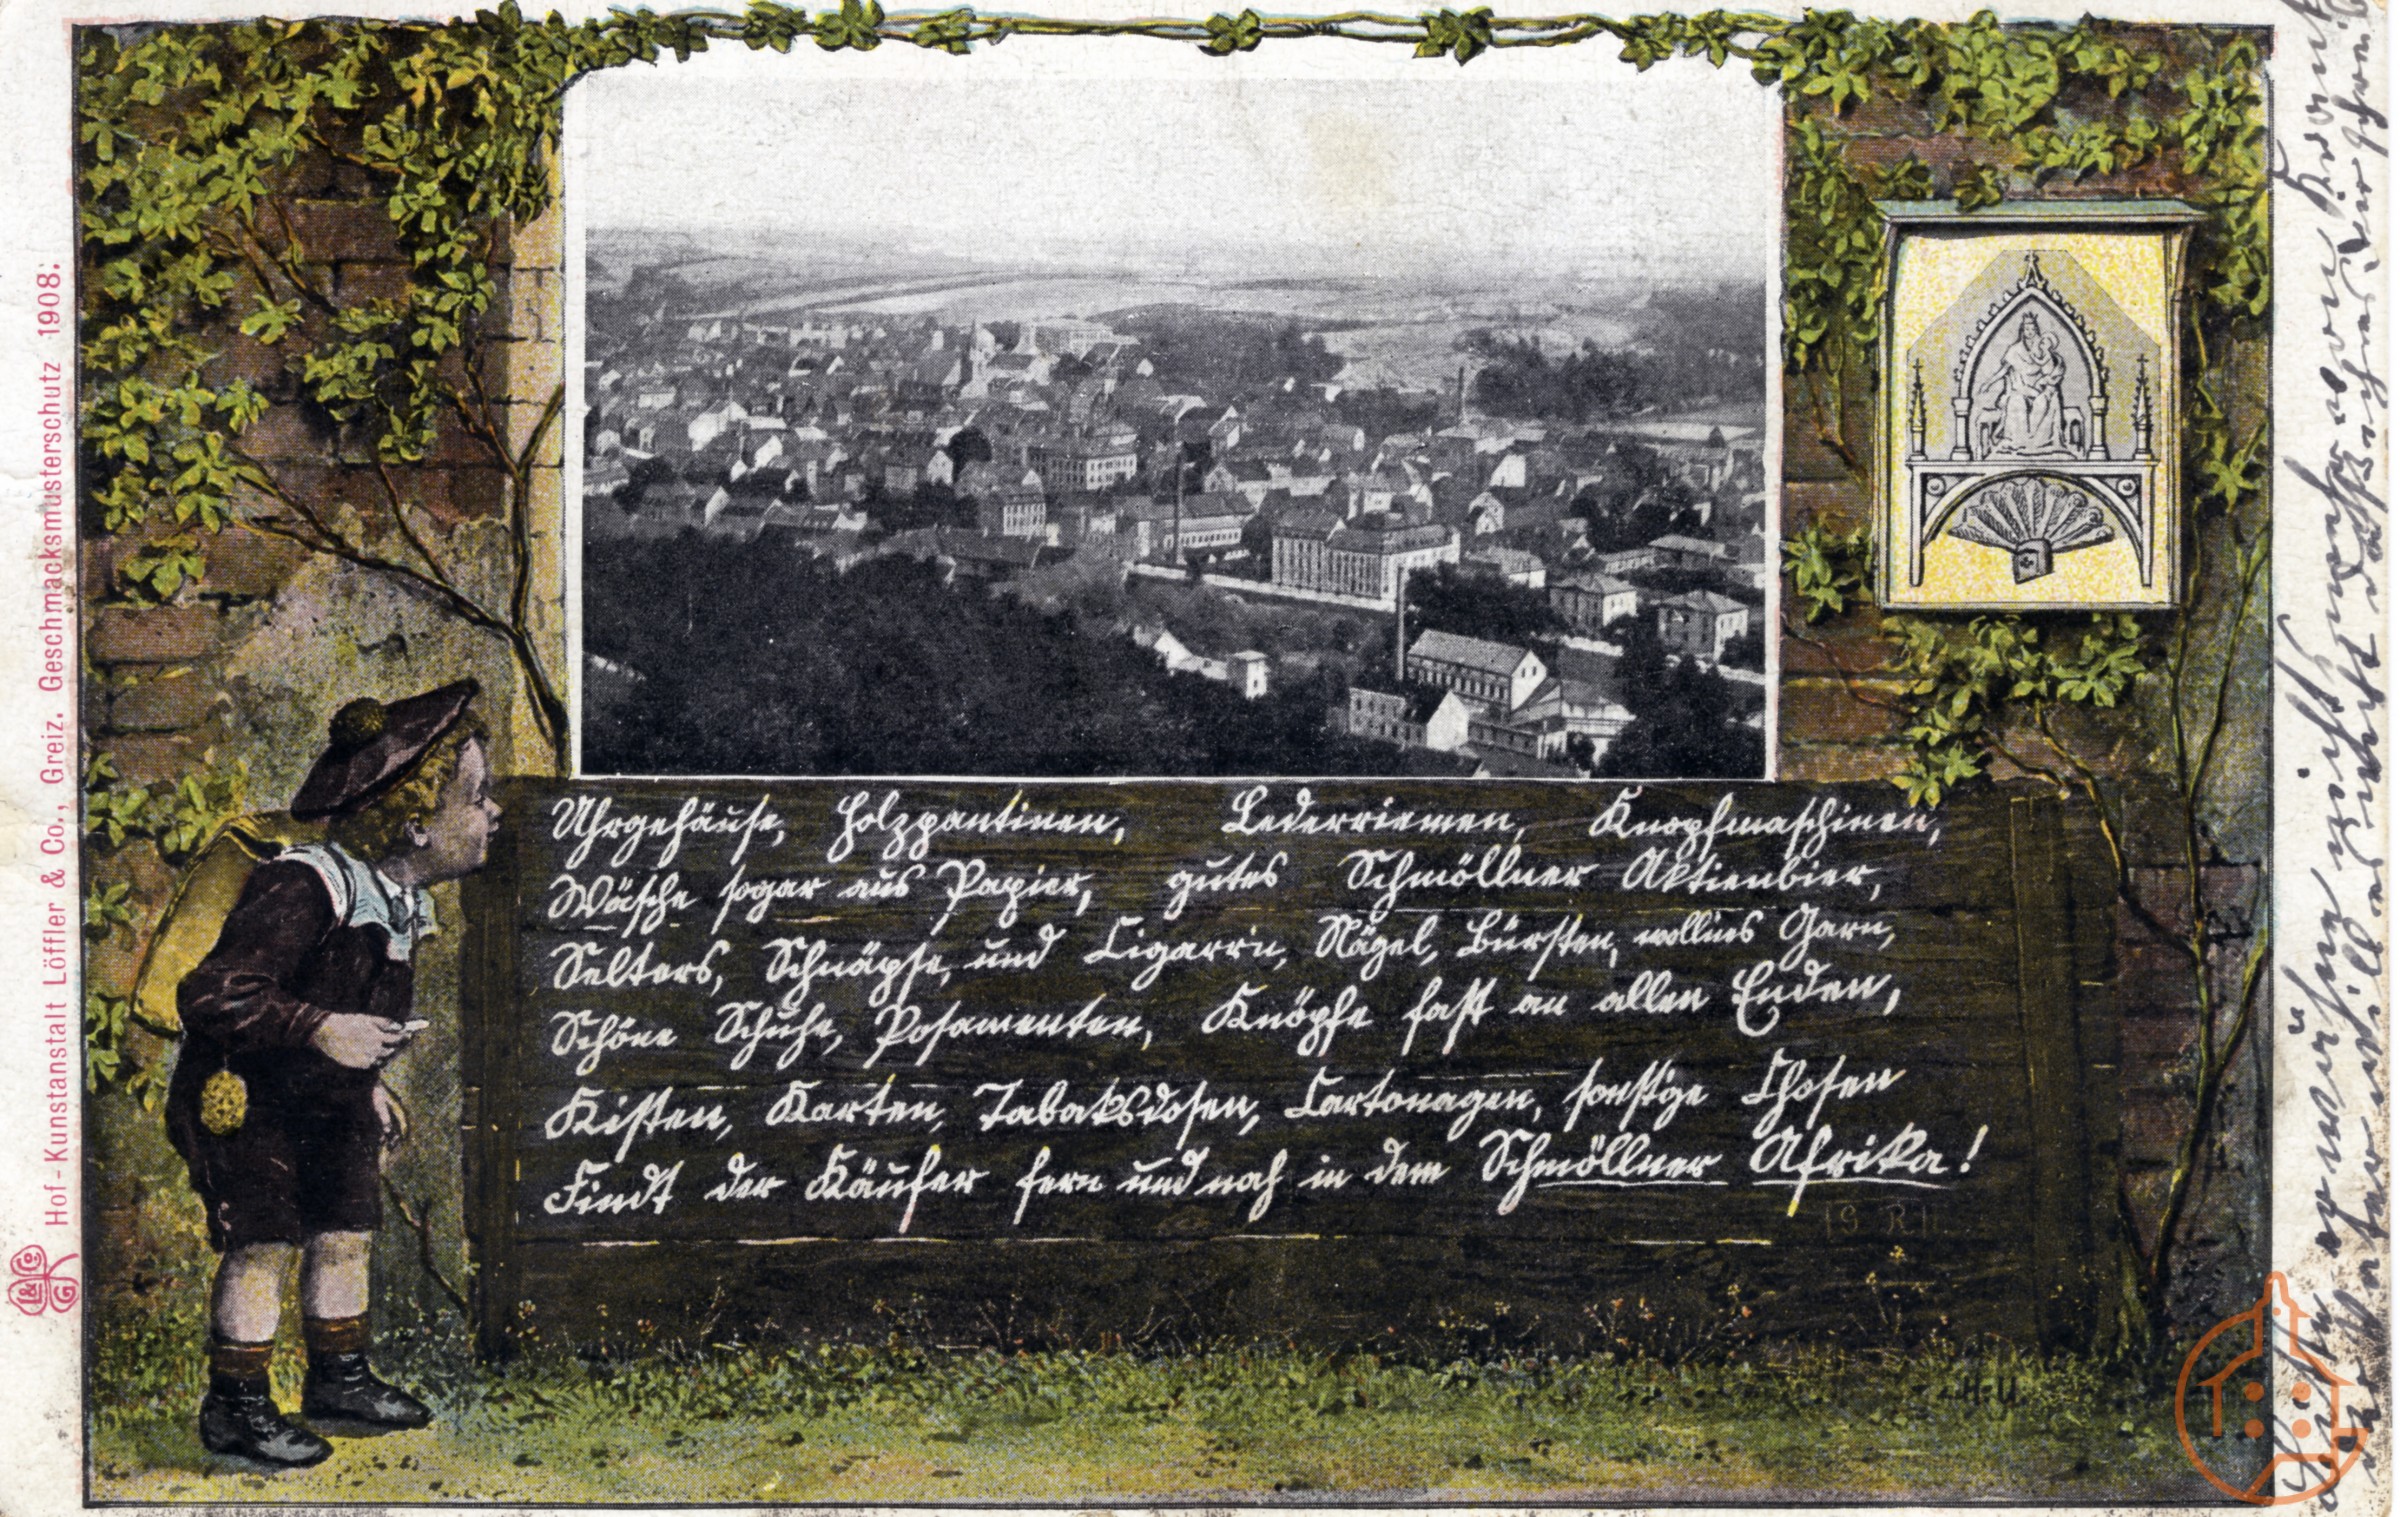 Hof-Kunstanstalt Löffler & Co., Greiz. Geschmacksmusterschutz 1908.
L & Co
G
Uhrgehäuse, Holzpantinen, Lederriemen, Knopfmaschinen,
Wäsche sogar aus Papier, gutes Schmöllner Aktienbier,
Selters, Schnäpse, und Cigarrn, Nägel, Bürsten, wollnes Garn,
Schöne Schuhe, Posamenten, Knöpfe fast an allen Enden,
Kisten, Karten, Tabaksdosen, Cartonagen, sonstge Chosen
Findt der Käufer fern und nah in dem Schmöllner Afrika!
H. U.